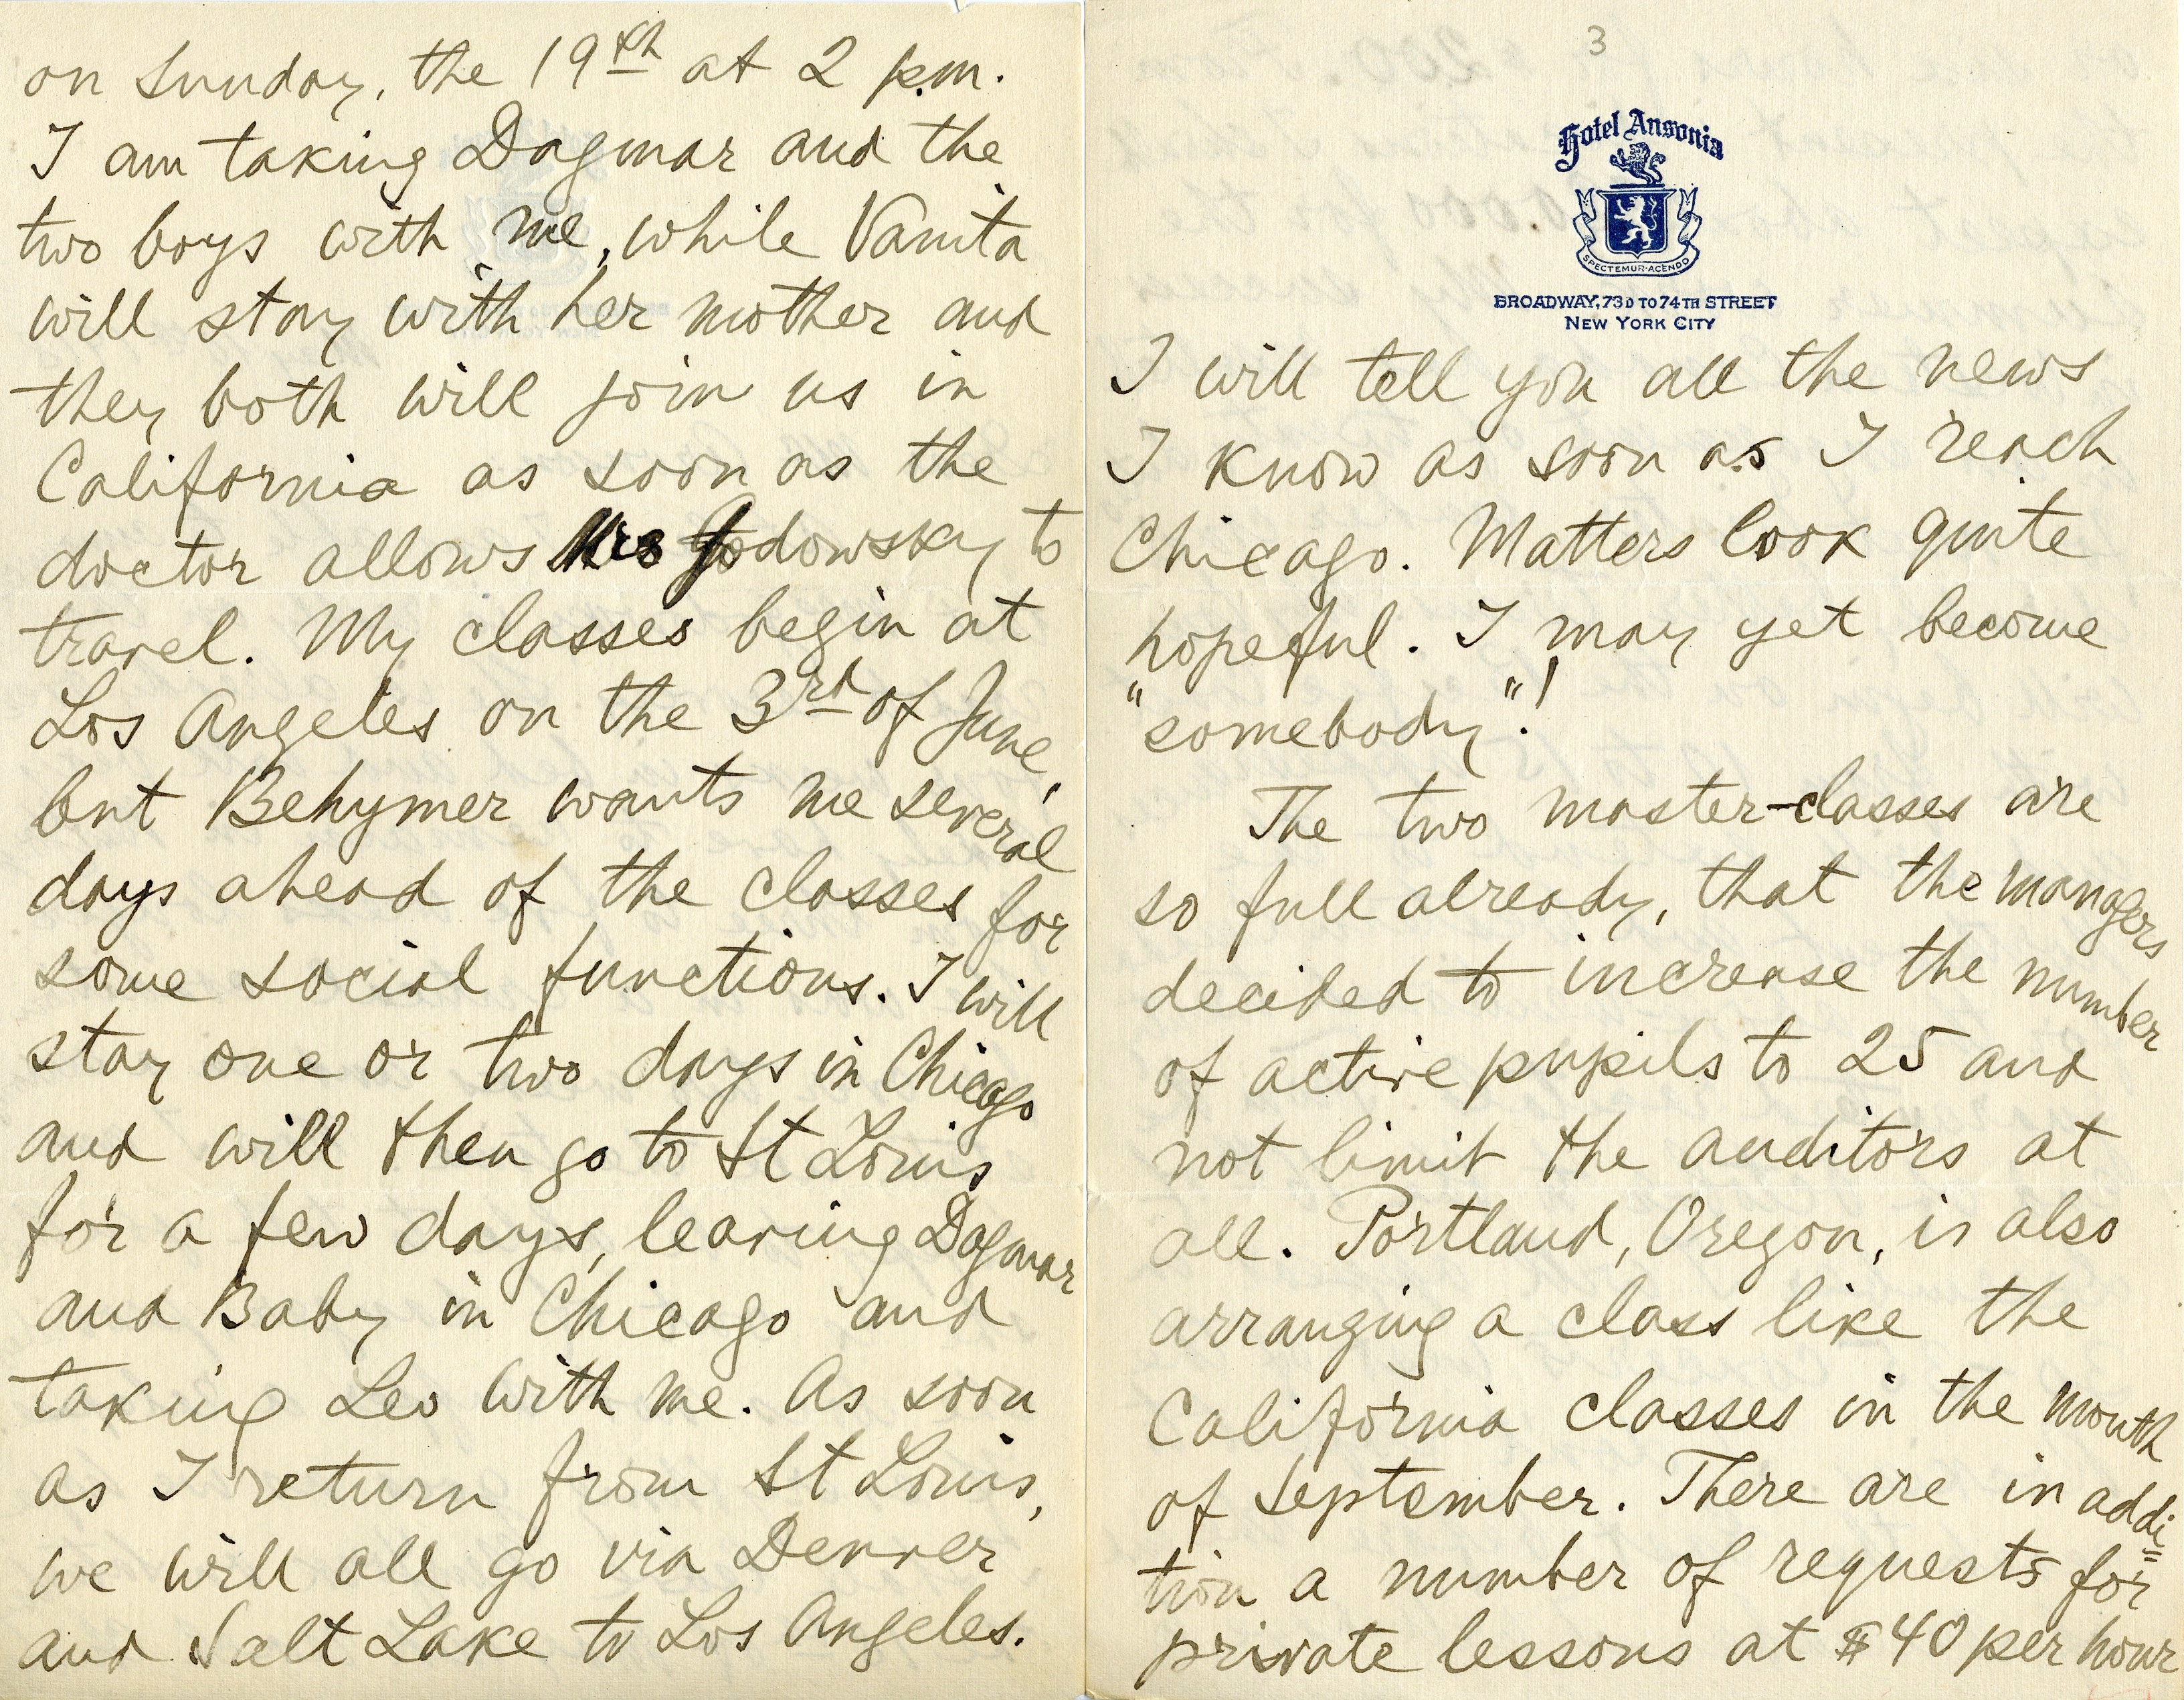 on Sunday, the 19th at 2 p.m.
I am taking Dagmar and the
two boys with me, while Vanita
will stay with her mother and
they both will join us in
California as soon as the
doctor allows Mrs Godowsky to
travel. My classes begin at
Los Angeles on the 3rd of June,
but Behymer wants me several
days ahead of the classes for
some social functions. I will
stay one or two days in Chicago
and will then go to St Louis
for a few days, leaving Dagmar
and Baby in Chicago and
taking Leo with me. As soon
as I return from St Louis,
we will all go via Denver
and Salt Lake to Los Angeles.
3
Hotel Ansonia
SPECTEMUR·AGENDO
BROADWAY, 73D TO 74TH STREET
NEW YORK CITY
I will tell you all the news
I know as soon as I reach
Chicago. Matters look quite
hopeful. I may yet become
"somebody"!
The two master-classes are
so full already, that the managers
decided to increase the number
of active pupils to 25 and
not limit the auditors at
all. Portland, Oregon, is also
arranging a class like the
California classes in the month
of September. There are in addi=
tion a number of requests for
private lessons at $40 per hour